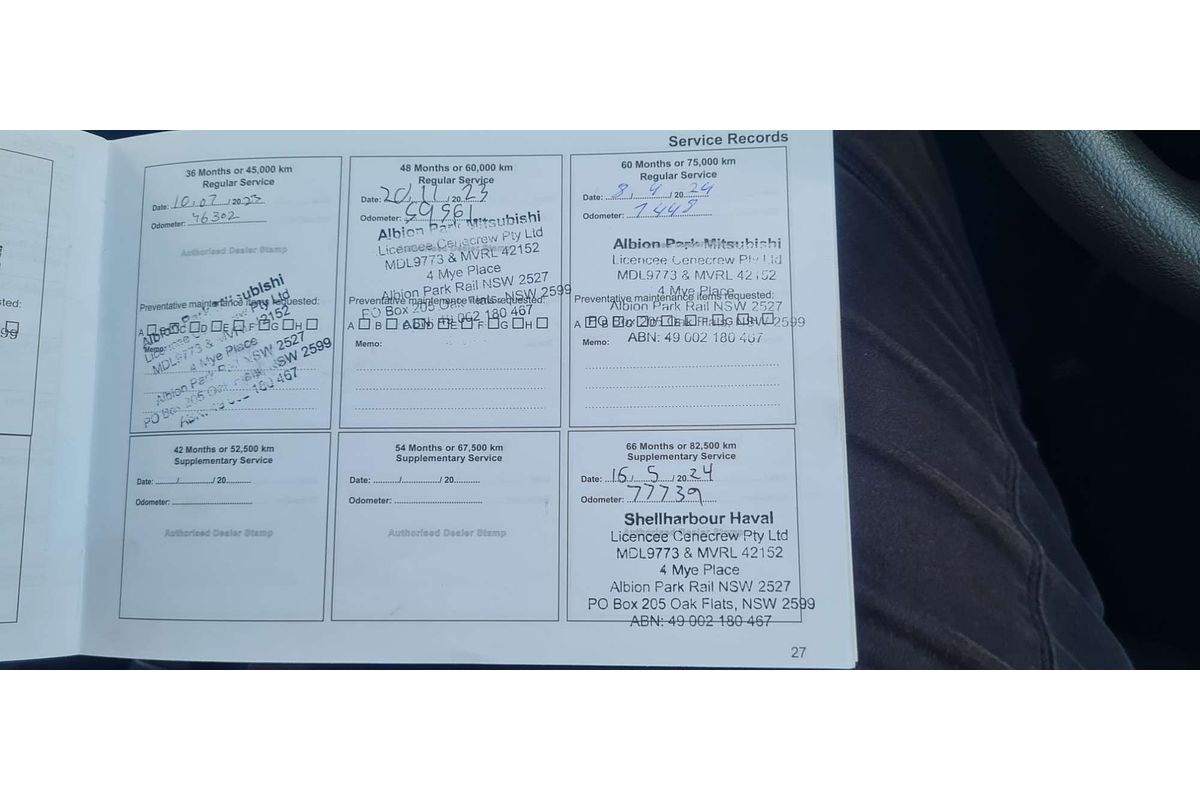 Service Records
36 Months or 45,000 km
Regular Service
Date: 10 / 07 / 20 23
Odometer: 46302
Authorised Dealer Stamp
Preventative maintenance items requested:
A B C D E F G H
Memo:
MDL9773
4 Mye Place
Albion Park NSW 2527
PO Box 205 Oak NSW 2599
467
48 Months or 60,000 km
Regular Service
Date: 20 / 11 / 20 23
Odometer:
Albion Park Mitsubishi
Licencee Cenecrew Pty Ltd
MDL9773 & MVRL 42152
4 Mye Place
Albion Park Rail NSW 2527
Preventative maintenance items requested:
PO Box 205 Oak Flats, NSW 2599
ABN: 49 002 180 467
A B C D E F G H
Memo:
60 Months or 75,000 km
Regular Service
Date: 8 / 4 / 20 24
Odometer:
Albion Park Mitsubishi
Licencee Cenecrew Pty Ltd
MDL9773 & MVRL 42152
4 Mye Place
Preventative maintenance items requested:
Albion Park Rail NSW 2527
PO Box 205 Oak Flats, NSW 2599
A B C D E F G H
ABN: 49 002 180 467
Memo:
42 Months or 52,500 km
Supplementary Service
Date: ......../................/ 20........
Odometer:
Authorised Dealer Stamp
54 Months or 67,500 km
Supplementary Service
Date: ......../................/ 20........
Odometer:
Authorised Dealer Stamp
66 Months or 82,500 km
Supplementary Service
Date: 16 / 5 / 20 24
Odometer: 77739
Shellharbour Haval
Licencee Cenecrew Pty Ltd
MDL9773 & MVRL 42152
4 Mye Place
Albion Park Rail NSW 2527
PO Box 205 Oak Flats, NSW 2599
ABN: 49 002 180 467
27